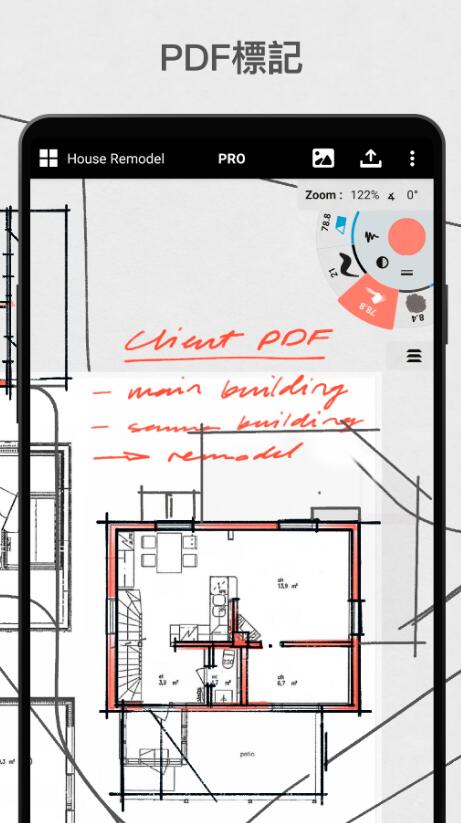 PDF標記
House Remodel PRO
Zoom : 122% ∡ 0°
78.8
21
78.8
8.4
Client PDF
- main building
- sauna building
→ remodel
13,9 m²
3,8 m²
6,7 m²
patio